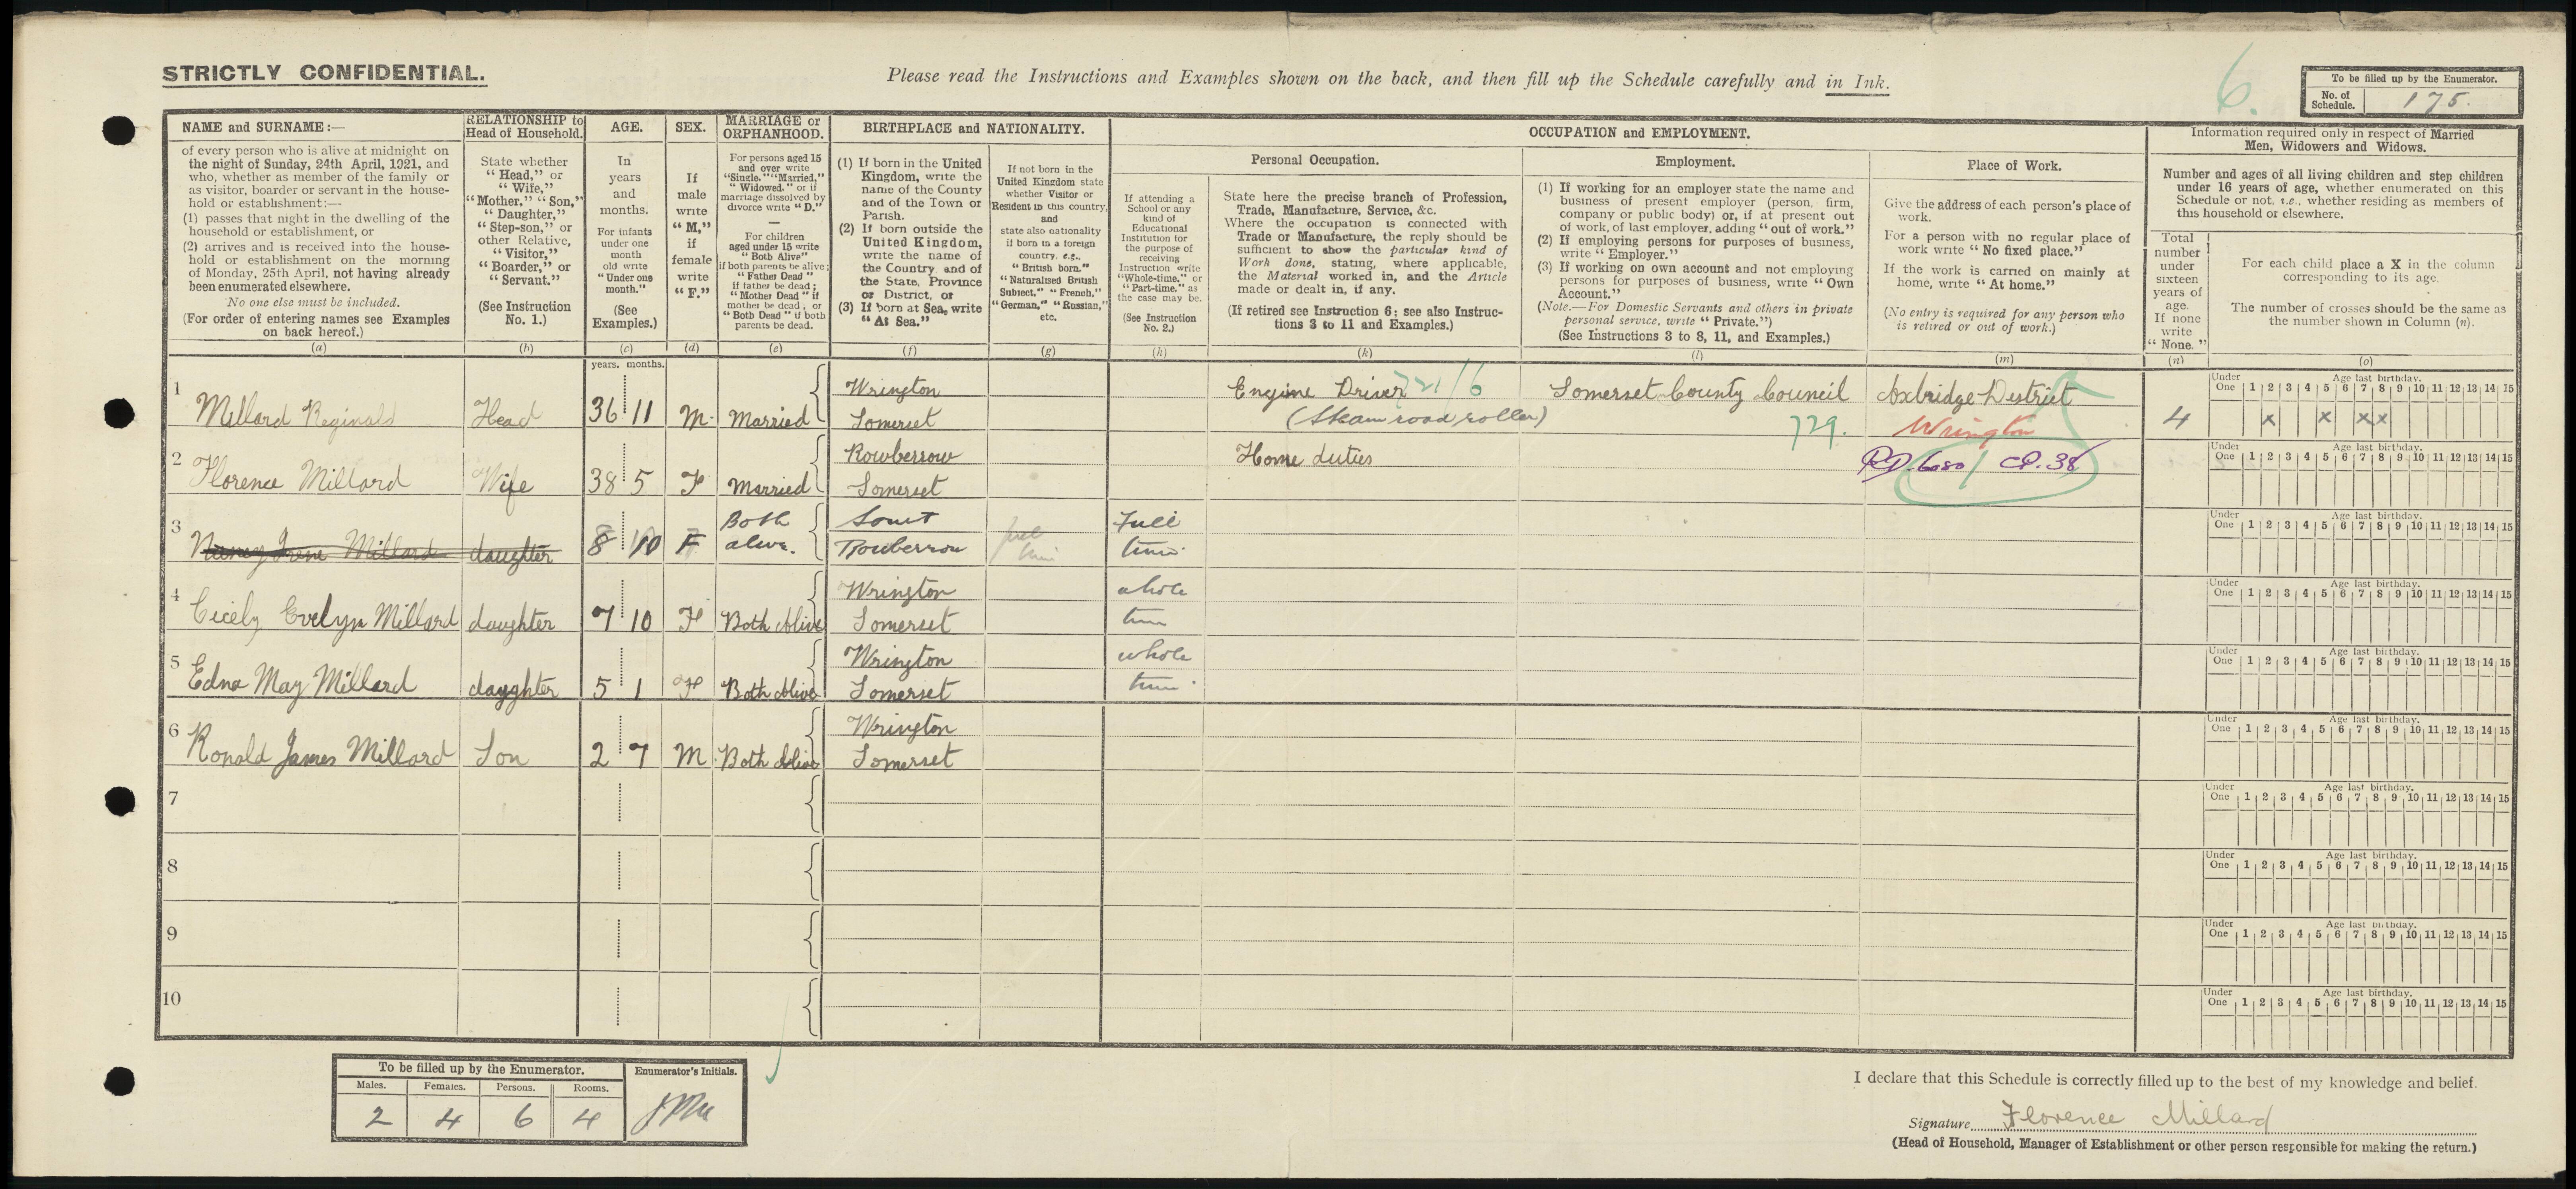 STRICTLY CONFIDENTIAL.
Please read the Instructions and Examples shown on the back, and then fill up the Schedule carefully and in Ink.
6.
To be filled up by the Enumerator.
No. of Schedule. 175.
NAME and SURNAME:—
of every person who is alive at midnight on
the night of Sunday, 24th April, 1921, and
who, whether as member of the family or
as visitor, boarder or servant in the house-
hold or establishment:—
(1) passes that night in the dwelling of the
household or establishment, or
(2) arrives and is received into the house-
hold or establishment on the morning
of Monday, 25th April, not having already
been enumerated elsewhere.
No one else must be included.
(For order of entering names see Examples
on back hereof.)
(a)
RELATIONSHIP to
Head of Household.
State whether
"Head," or
"Wife,"
"Mother," "Son,"
"Daughter,"
"Step-son," or
other Relative,
"Visitor,"
"Boarder," or
"Servant."
(See Instruction
No. 1.)
(b)
AGE.
In
years
and
months.
For infants
under one
month
old write
"Under one
month."
(See
Examples.)
(c)
years. months.
SEX.
If
male
write
"M,"
if
female
write
"F."
(d)
MARRIAGE or
ORPHANHOOD.
For persons aged 15
and over write
"Single," "Married,"
"Widowed," or if
marriage dissolved by
divorce write "D."
—
For children
aged under 15 write
"Both Alive"
if both parents be alive;
"Father Dead"
if father be dead;
"Mother Dead" if
mother be dead; or
"Both Dead" if both
parents be dead.
(e)
BIRTHPLACE and NATIONALITY.
(1) If born in the United
Kingdom, write the
name of the County
and of the Town or
Parish.
(2) If born outside the
United Kingdom,
write the name of
the Country and of
the State, Province
or District, or
(3) If born at Sea, write
"At Sea."
(f)
If not born in the
United Kingdom state
whether Visitor or
Resident in this country,
and
state also nationality
if born in a foreign
country, e.g.,
"British born."
"Naturalised British
Subject," "French,"
"German," "Russian,"
etc.
(g)
OCCUPATION and EMPLOYMENT.
Personal Occupation.
If attending a
School or any
kind of
Educational
Institution for
the purpose of
receiving
Instruction write
"Whole-time." or
"Part-time." as
the case may be.
(See Instruction
No. 2.)
(h)
State here the precise branch of Profession,
Trade, Manufacture, Service, &c.
Where the occupation is connected with
Trade or Manufacture, the reply should be
sufficient to show the particular kind of
Work done, stating, where applicable,
the Material worked in, and the Article
made or dealt in, if any.
(If retired see Instruction 6; see also Instruc-
tions 3 to 11 and Examples.)
(k)
Employment.
(1) If working for an employer state the name and
business of present employer (person, firm,
company or public body) or, if at present out
of work, of last employer, adding "out of work."
(2) If employing persons for purposes of business,
write "Employer."
(3) If working on own account and not employing
persons for purposes of business, write "Own
Account."
(Note.—For Domestic Servants and others in private
personal service, write "Private.")
(See Instructions 3 to 8, 11, and Examples.)
(l)
Place of Work.
Give the address of each person's place of
work.
For a person with no regular place of
work write "No fixed place."
If the work is carried on mainly at
home, write "At home."
(No entry is required for any person who
is retired or out of work.)
(m)
Information required only in respect of Married
Men, Widowers and Widows.
Number and ages of all living children and step children
under 16 years of age, whether enumerated on this
Schedule or not, i.e., whether residing as members of
this household or elsewhere.
Total
number
under
sixteen
years of
age.
If none
write
"None."
(n)
For each child place a X in the column
corresponding to its age.
The number of crosses should be the same as
the number shown in Column (n).
(o)
Under One Age last birthday.
1 2 3 4 5 6 7 8 9 10 11 12 13 14 15
1 Millard Reginald Head 36 11 M. Married Wrington Somerset Engine Driver 721/6 (Steam road roller) Somerset County Council 729. Axbridge District Wrington 4 x x x x
2 Florence Millard Wife 38 5 F Married Rowberrow Somerset Home duties RD. 6080/ CP. 38
3 Nancy Irene Millard daughter 8 10 F Both alive. Somt Rowberrow full time Full time
4 Cicely Evelyn Millard daughter 7 10 F Both Alive Wrington Somerset whole time
5 Edna May Millard daughter 5 1 F Both Alive Wrington Somerset whole time
6 Ronald James Millard Son 2 7 M Both Alive Wrington Somerset
7
8
9
10
To be filled up by the Enumerator. Enumerator's Initials.
Males. Females. Persons. Rooms.
2 4 6 4
I declare that this Schedule is correctly filled up to the best of my knowledge and belief.
Signature Florence Millard
(Head of Household, Manager of Establishment or other person responsible for making the return.)